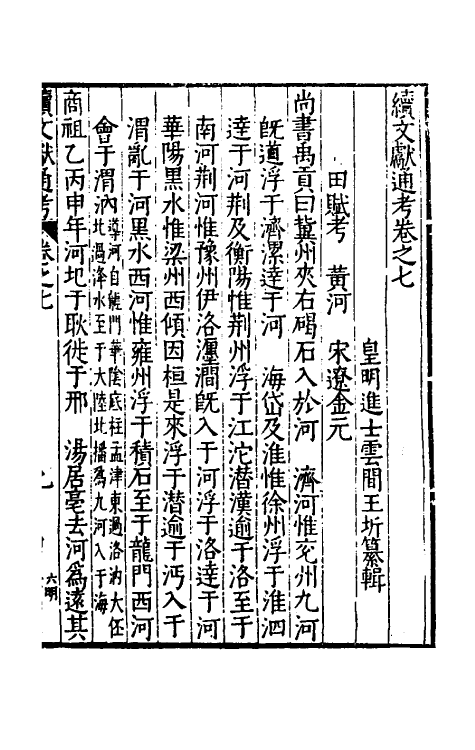 續文獻通考卷之七
皇明進士雲間王圻纂輯
田賦考　黃河　宋遼金元
尚書禹貢曰冀州夾右碣石入於河　濟河惟兗州九河
旣道浮于濟漯達于河　海岱及淮惟徐州浮于淮泗
達于河荆及衡陽惟荆州浮于江沱潛漢逾于洛至于
南河荆河惟豫州伊洛瀍澗旣入于河浮于洛達于河
華陽黑水惟梁州西傾因桓是來浮于潛逾于沔入于
渭亂于河黑水西河惟雍州浮于積石至于龍門西河
會于渭汭導河自龍門華陰底柱孟津東過洛汭大伾
北過洚水至于大陸北播爲九河入于海
商祖乙丙申年河圮于耿徙于邢　湯居亳去河爲遠其
續文獻通考　卷之七
六明